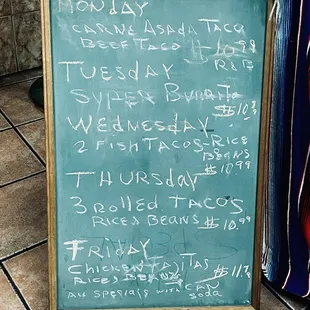 MONDAY
CARNE ASADA TACO
BEEF TACO $10.99
R&B
TUESDAY
SUPER BURRITO
$10.99
WEDNESDAY
2 FISH TACOS-RICE
BEANS
$10.99
THURSDAY
3 ROLLED TACOS
RICES BEANS $10.99
FRIDAY
CHICKEN FAJITAS
RICES BEANS $11.
ALL SPECIALS WITH CAN
SODA